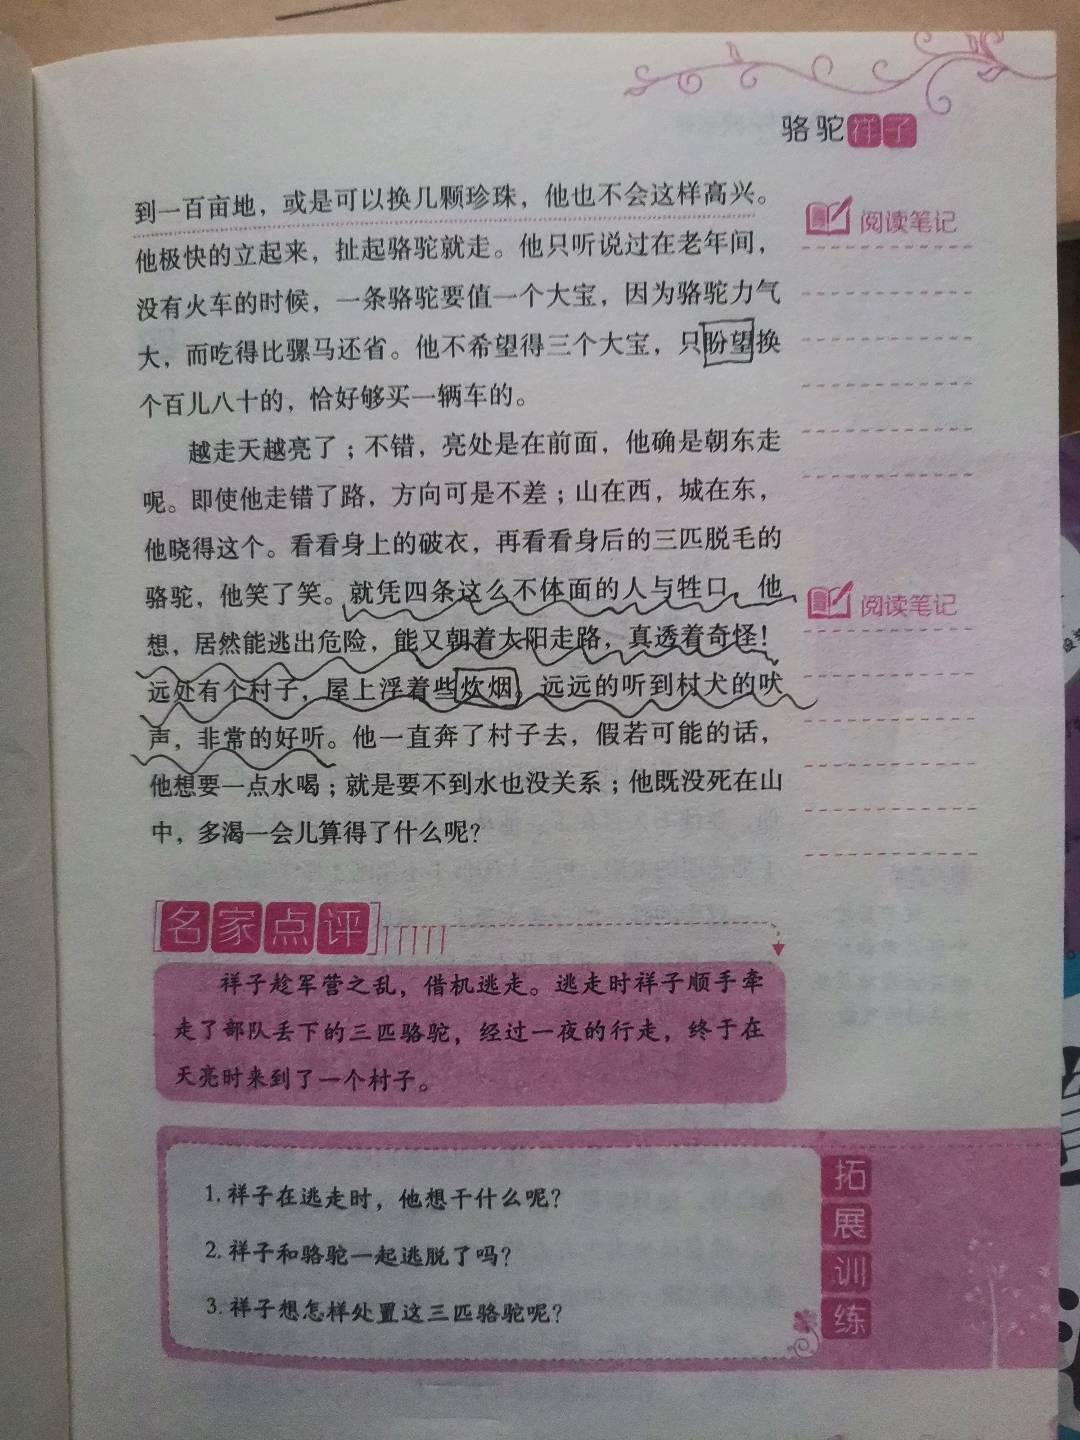 骆驼祥子
到一百亩地，或是可以换几颗珍珠，他也不会这样高兴。
他极快的立起来，扯起骆驼就走。他只听说过在老年间，
没有火车的时候，一条骆驼要值一个大宝，因为骆驼力气
大，而吃得比骡马还省。他不希望得三个大宝，只盼望换
个百儿八十的，恰好够买一辆车的。
越走天越亮了；不错，亮处是在前面，他确是朝东走
呢。即使他走错了路，方向可是不差；山在西，城在东，
他晓得这个。看看身上的破衣，再看看身后的三匹脱毛的
骆驼，他笑了笑。就凭四条这么不体面的人与牲口，他
想，居然能逃出危险，能又朝着太阳走路，真透着奇怪！
远处有个村子，屋上浮着些炊烟。远远的听到村犬的吠
声，非常的好听。他一直奔了村子去，假若可能的话，
他想要一点水喝；就是要不到水也没关系；他既没死在山
中，多渴一会儿算得了什么呢？
阅读笔记
阅读笔记
名家点评
祥子趁军营之乱，借机逃走。逃走时祥子顺手牵
走了部队丢下的三匹骆驼，经过一夜的行走，终于在
天亮时来到了一个村子。
1. 祥子在逃走时，他想干什么呢？
2. 祥子和骆驼一起逃脱了吗？
3. 祥子想怎样处置这三匹骆驼呢？
拓展训练